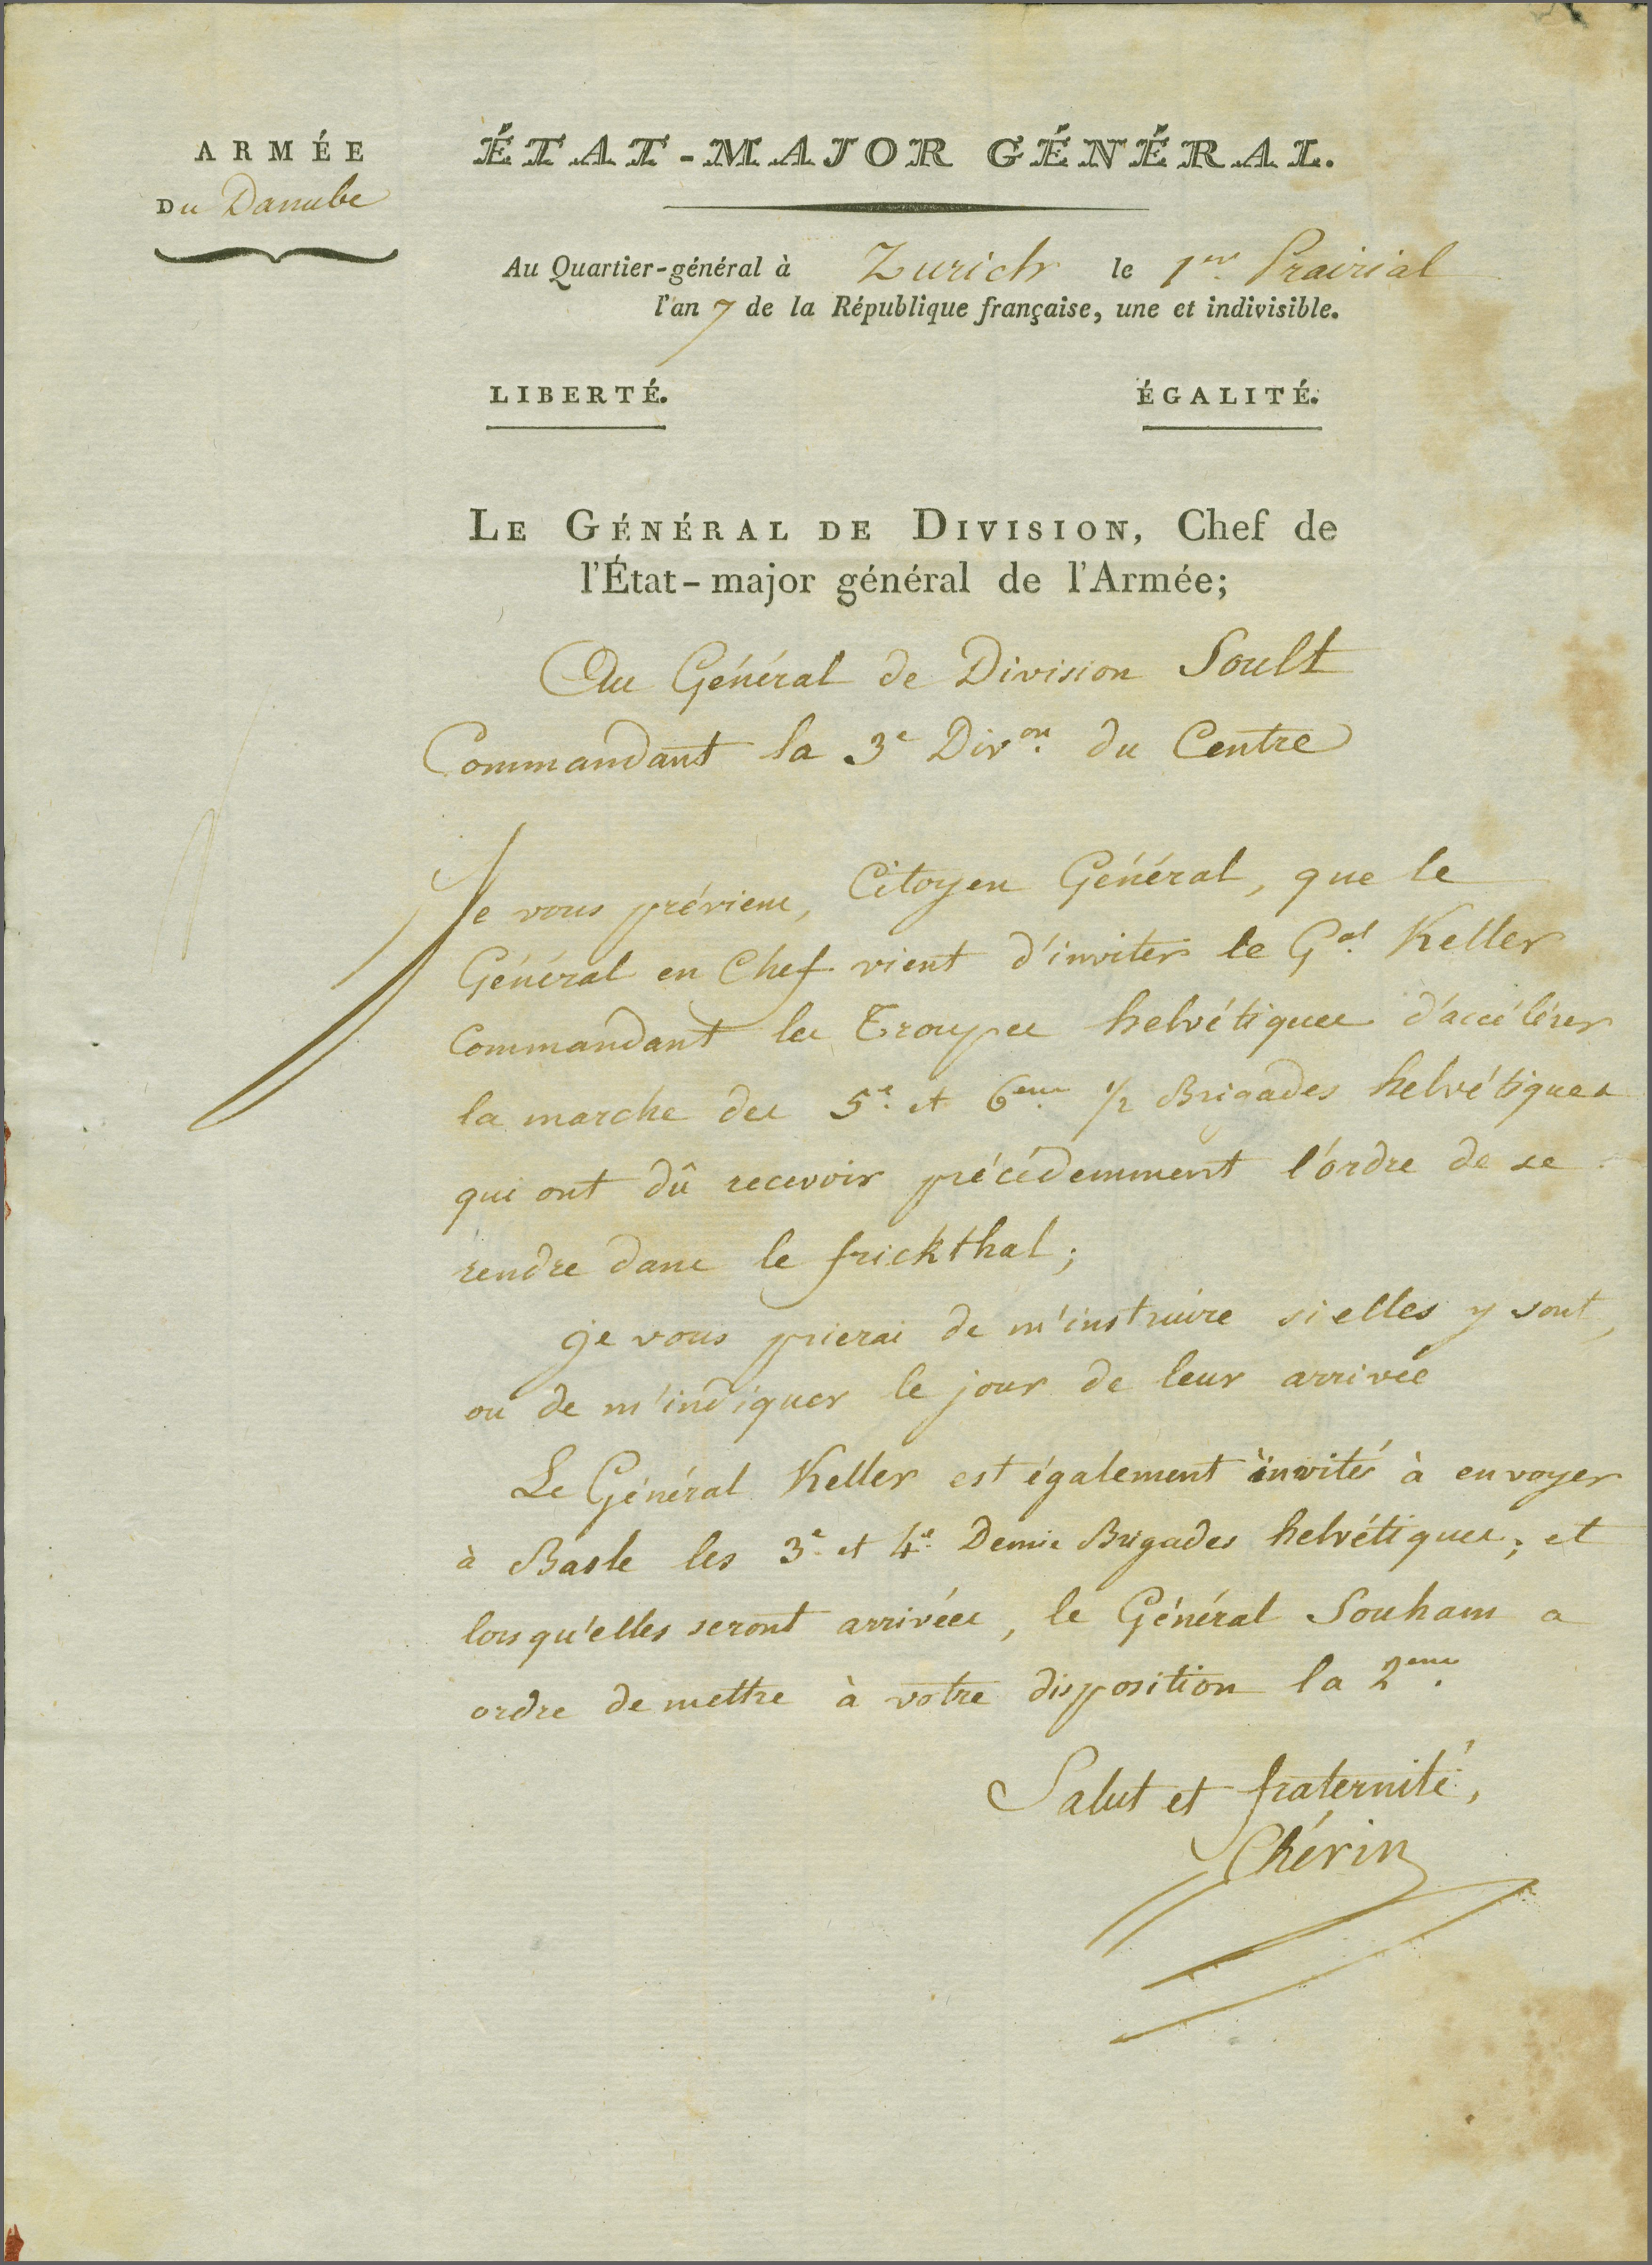 ARMÉE
Du Danube
ÉTAT-MAJOR GÉNÉRAL.
Au Quartier-général à Zurich le 1er Prairial
l'an 7 de la République française, une et indivisible.
LIBERTÉ. ÉGALITÉ.
LE GÉNÉRAL DE DIVISION, Chef de
l'État-major général de l'Armée;
Au Général de Division Soult
Commandant la 3e Divon. du Centre
Je vous préviens, Citoyen Général, que le
Général en Chef vient d'inviter le Gal. Keller
Commandant les Troupes helvétiques d'accélérer
la marche des 5e. et 6eme. 1/2 Brigades helvétiques
qui ont dû recevoir précédemment l'ordre de se
rendre dans le frickthal;
je vous prierai de m'instruire si elles y sont,
ou de m'indiquer le jour de leur arrivée
Le Général Keller est également invité à envoyer
à Basle les 3e. et 4e. Demie Brigades helvétiques; et
lorsqu'elles seront arrivées, le Général Souham a
ordre de mettre à votre disposition la 2eme.
Salut et fraternité,
Chérin